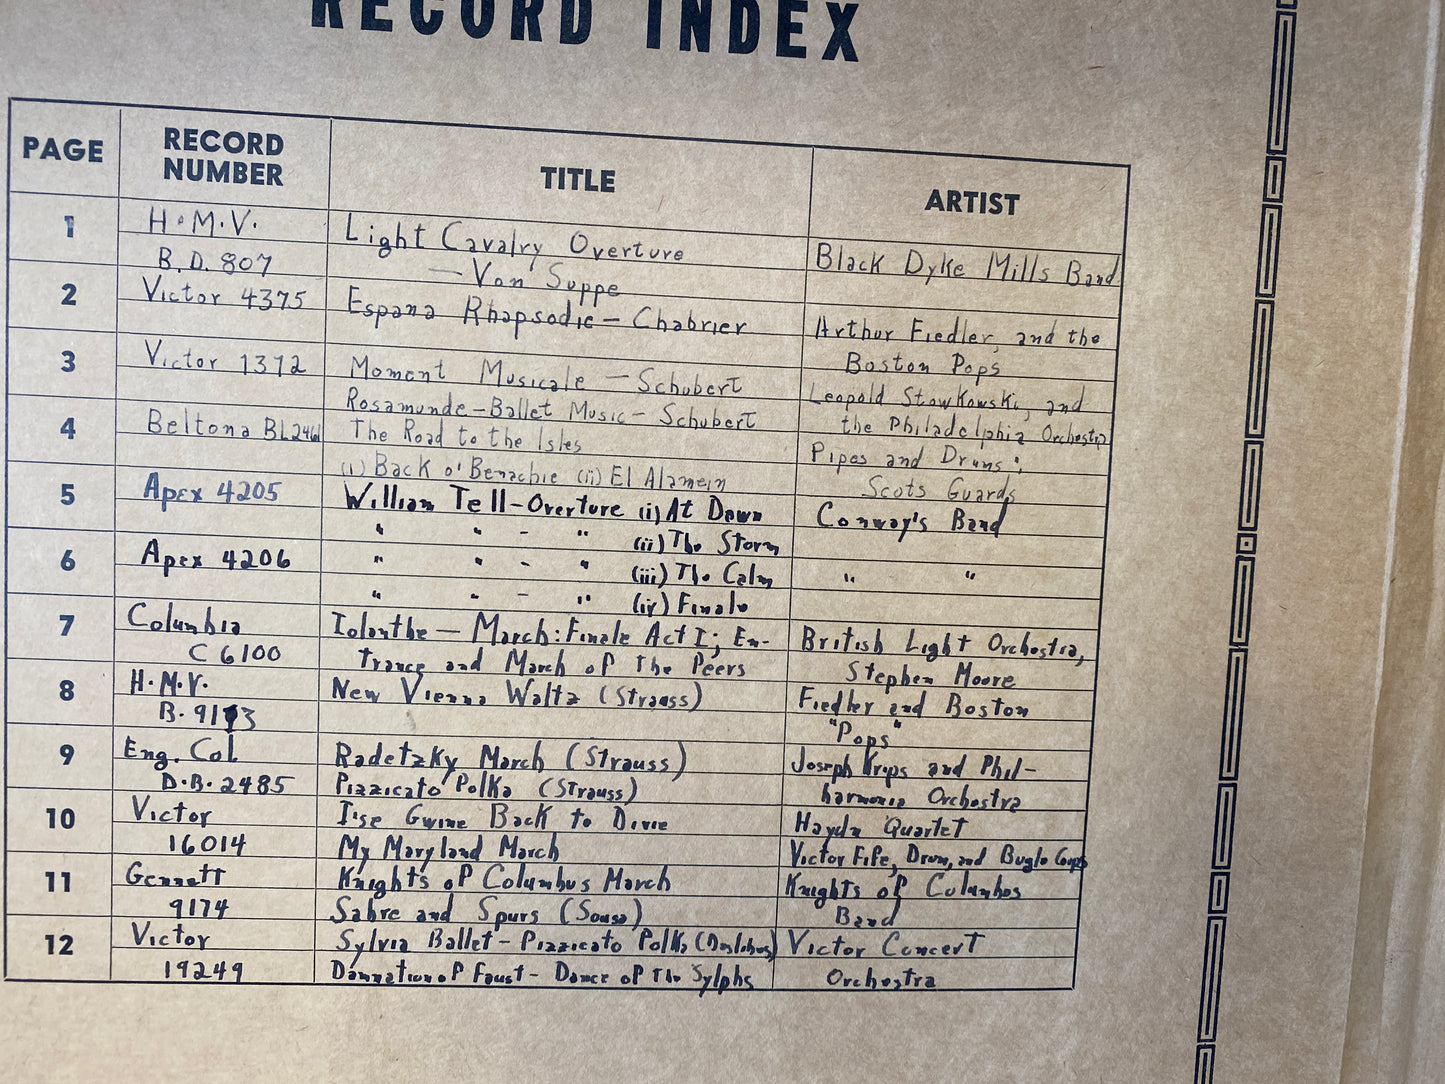 RECORD INDEX
PAGE RECORD NUMBER TITLE ARTIST
1 H.M.V. Light Cavalry Overture Black Dyke Mills Band
B.D. 807 — Von Suppe
2 Victor 4375 Espana Rhapsodie — Chabrier Arthur Fiedler, and the
Boston Pops
3 Victor 1312 Moment Musicale — Schubert Leopold Stowkowski, and
Rosamunde — Ballet Music — Schubert the Philadelphia Orchestra
4 Beltona BL2461 The Road to the Isles Pipes and Drums,
(i) Back o' Benachie (ii) El Alamein Scots Guards
5 Apex 4205 William Tell - Overture (i) At Dawn Conway's Band
" " - " (ii) The Storm
6 Apex 4206 " " - " (iii) The Calm " "
" " - " (iv) Finale
7 Columbia Iolanthe — March: Finale Act I; En- British Light Orchestra,
C 6100 trance and March of the Peers Stephen Moore
8 H.M.V. New Vienna Waltz (Strauss) Fiedler and Boston
B. 9173 "Pops"
9 Eng. Col. Radetzky March (Strauss) Joseph Krips and Phil-
D.B. 2485 Pizzicato Polka (Strauss) harmonia Orchestra
10 Victor I'se Gwine Back to Dixie Haydn Quartet
16014 My Maryland March Victor Fife, Drum, and Bugle Corps
11 Gennett Knights of Columbus March Knights of Columbus
9174 Sabre and Spurs (Sousa) Band
12 Victor Sylvia Ballet - Pizzicato Polka Victor Concert
19249 Damnation of Faust - Dance of the Sylphs Orchestra